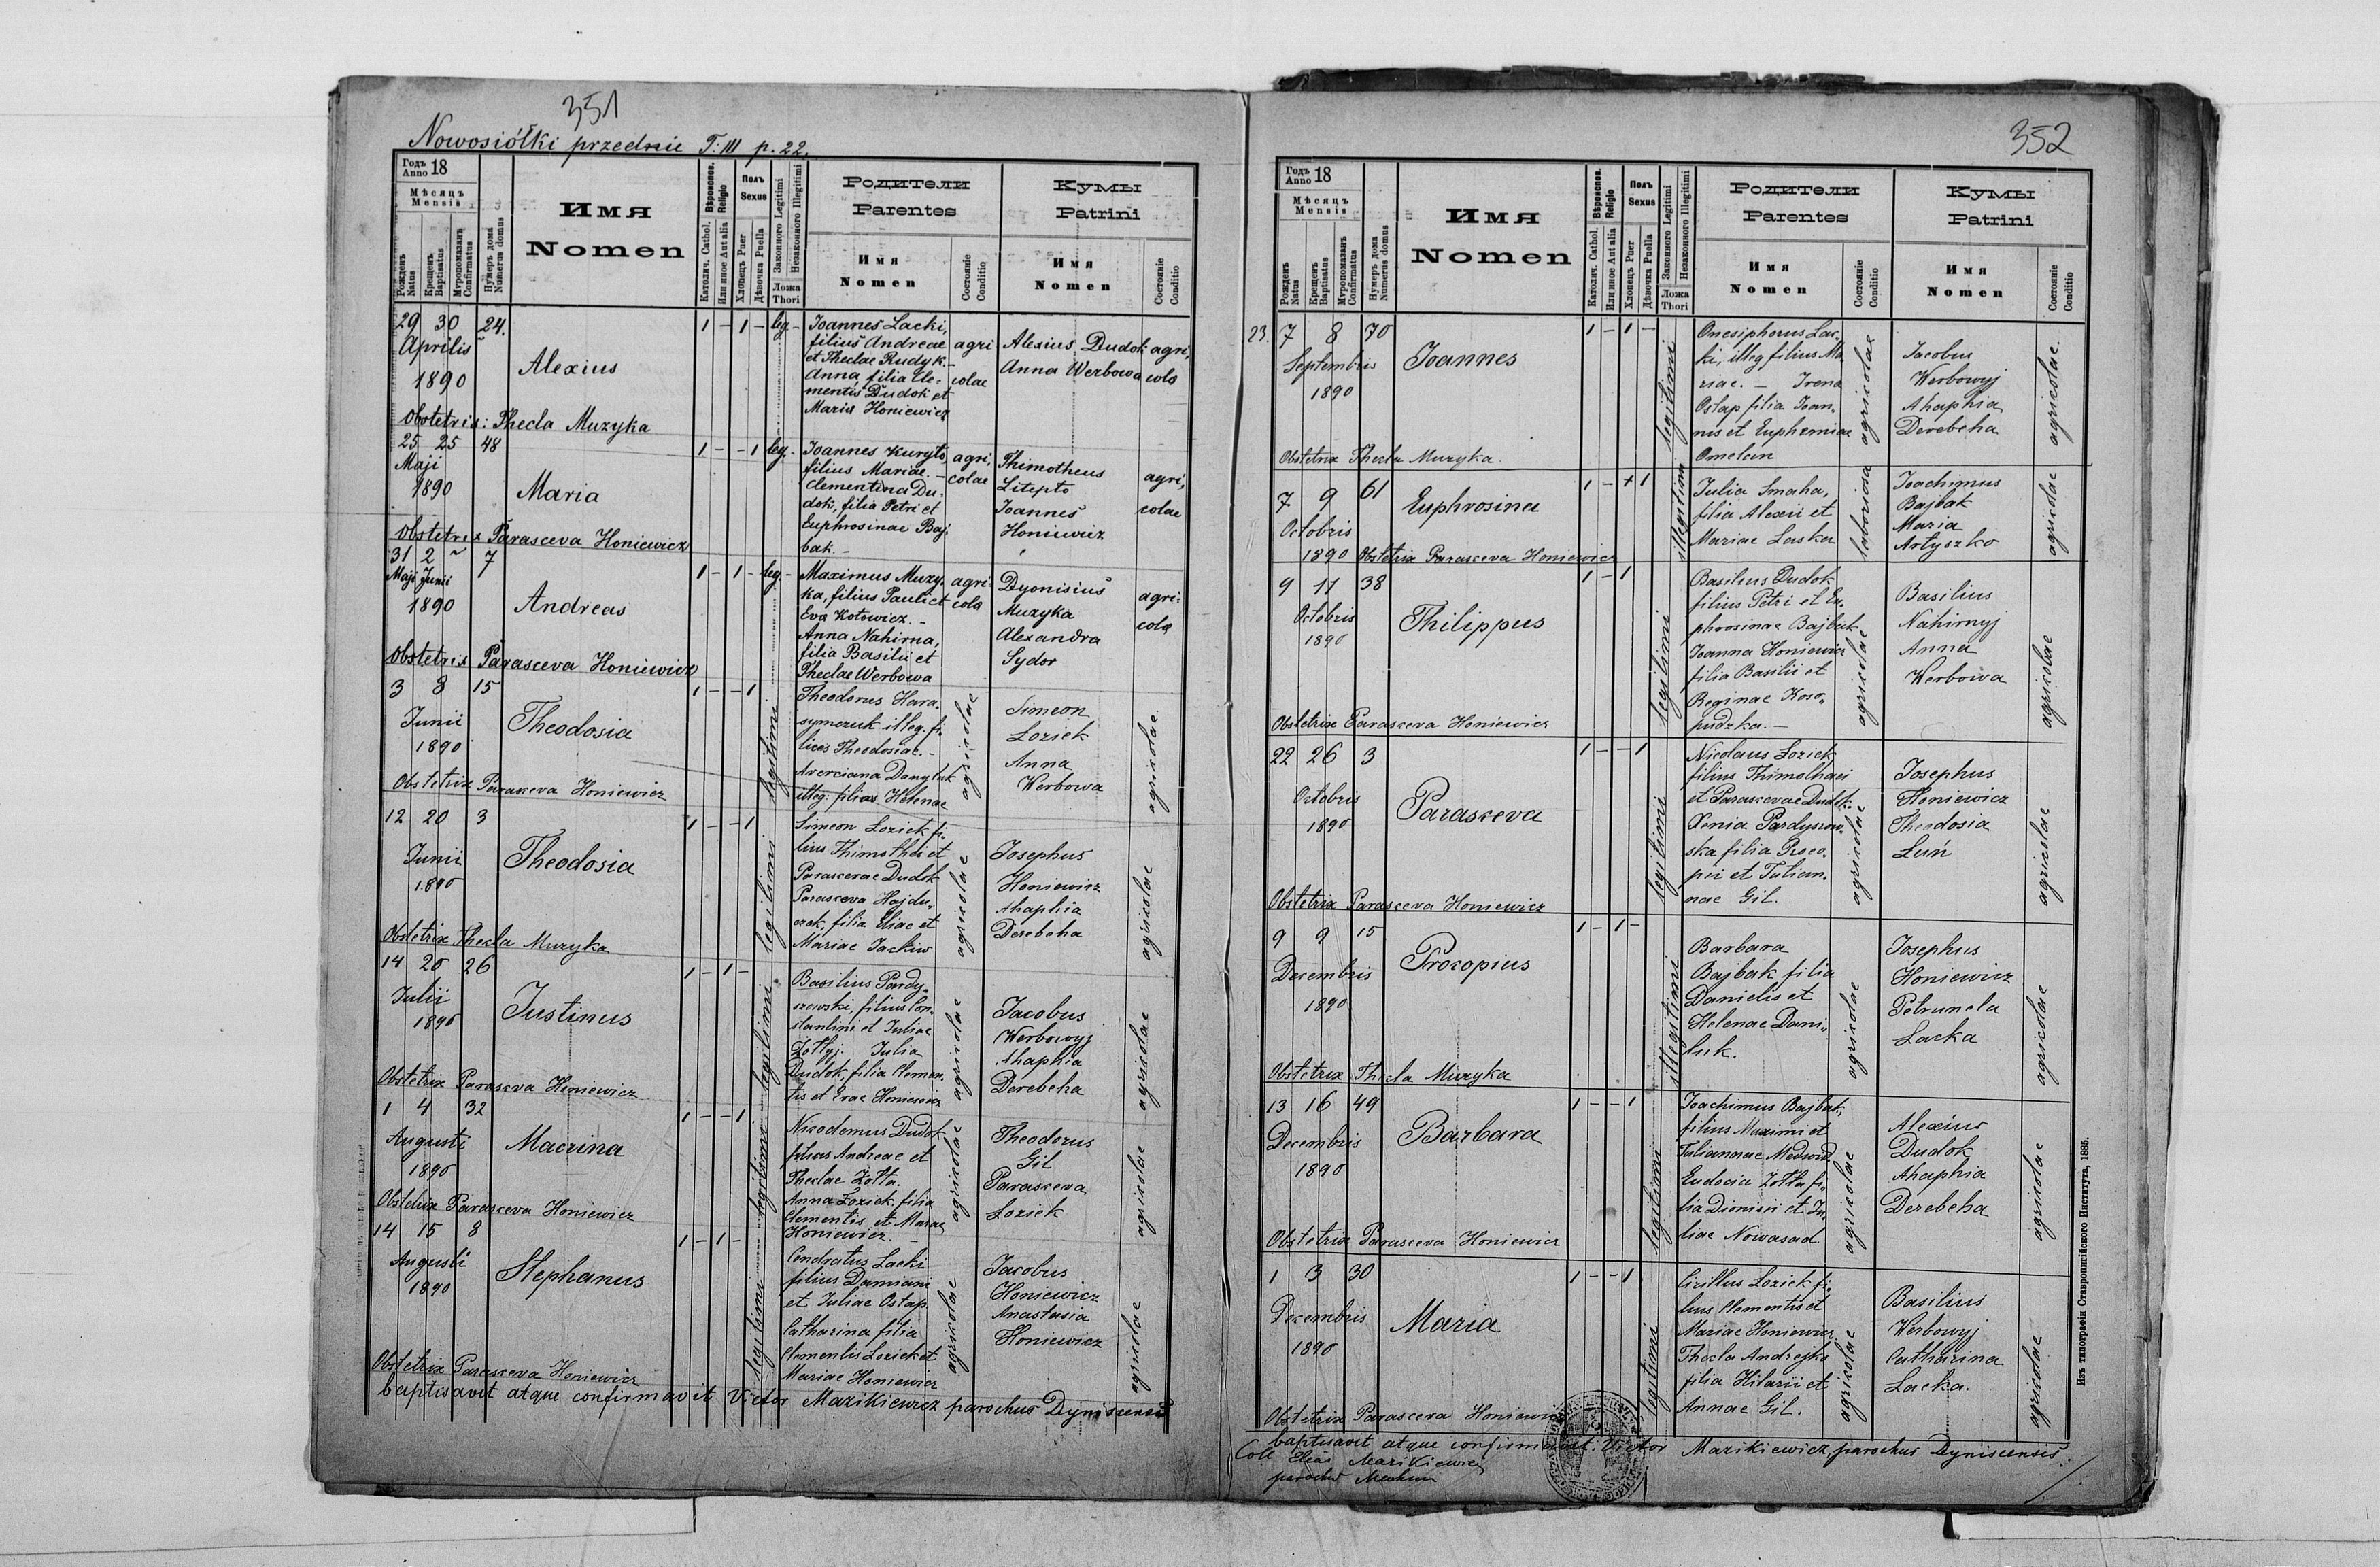 351
Nowosiółki przednie T: III p. 22.
Годъ Anno 18
Мѣсяцъ Mensis
Рожденъ Natus
Крещенъ Baptisatus
Мѵропомазанъ Confirmatus
Нумеръ дома Numerus domus
Имя Nomen
Вѣроиспов. Religio
Католич. Cathol.
Или иное Aut alia
Полъ Sexus
Хлопецъ Puer
Дѣвочка Puella
Законного Legitimi
Незаконного Illegitimi
Ложа Thori
Родители Parentes
Имя Nomen
Состояніе Conditio
Кумы Patrini
Имя Nomen
Состояніе Conditio
29 30 24.
Aprilis
1890
Alexius
1 - 1 - leg. -
Joannes Lacki,
filius Andreae
et Theclae Rudyk. -
Anna, filia Cle-
mentis Dudok et
Maria Honiewicz
agri
colae
Alexius Dudok
Anna Werbowa
agri,
cola
Obstetrix: Thecla Muzyka
25 25 48
Maji
1890
Maria
1 - - 1 leg. -
Joannes Kuryto,
filius Mariae. -
Clementina Du-
dok, filia Petri et
Euphrosinae Baj-
bak. -
agri,
colae
Thimotheus
Litepto
Joannes
Honiewicz
agri,
colae
Obstetrix Parasceva Honiewicz
31 2 ~ 7
Maji Junii
1890
Andreas
1 - 1 - leg. -
Maximus Muzy-
ka, filius Pauli et
Eva Kotowicz. -
Anna Nahirna,
filia Basilii et
Theclae Werbowa
agri-
cola
Dyonisius
Muzyka
Alexandra
Sydor
agri-
cola
Obstetrix Parasceva Honiewicz
3 8 15
Junii
1890
Theodosia
1 - - 1
legitimi
Theodorus Hara-
symczuk illeg. fi-
lius Theodosiae. -
Averciana Danyluk
illeg. filia Helenae
agricolae
Simeon
Loziek
Anna
Werbowa
agricolae.
Obstetrix Parasceva Honiewicz
12 20 3
Junii
1890
Theodosia
1 - - 1
legitimi
Simeon Loziek fi-
lius Thimothei et
Parascevae Dudok
Parasceva Hajdu-
czok, filia Eliae et
Mariae Jackiw
agricolae
Josephus
Honiewicz
Ahaphia
Derebeha
agricolae
Obstetrix Thecla Muzyka
14 20 26
Julii
1890
Justinus
1 - 1 -
legitimi
Basilius Pardy-
szewski, filius Con-
stantini et Juliae
Zottyj. Julia
Dudok, filia Clemen-
tis et Evae Honiewicz
agricolae
Jacobus
Werbowyj
Ahaphia
Derebeha
agricolae
Obstetrix Parasceva Honiewicz
1 4 32
Augusti
1890
Macrina
1 - - 1
legitimi
Nicodemus Dudok
filius Andreae et
Theclae Zotta.
Anna Loziek filia
Clementis et Mariae
Honiewicz. -
agricolae
Theodorus
Gil
Parasceva
Loziek
agricolae
Obstetrix Parasceva Honiewicz
14 15 8
Augusti
1890
Stephanus
1 - 1 -
legitimi
Condratus Lacki
filius Damiani
et Juliae Ostap.
Catharina filia
Clementis Loziek et
Mariae Honiewicz
agricolae
Jacobus
Honiewicz
Anastasia
Honiewicz
agricolae
Obstetrix Parasceva Honiewicz
baptisavit atque confirmavit Victor Mazikiewicz parochus Dyniscensis
352
Годъ Anno 18
Мѣсяцъ Mensis
Рожденъ Natus
Крещенъ Baptisatus
Мѵропомазанъ Confirmatus
Нумеръ дома Numerus domus
Имя Nomen
Вѣроиспов. Religio
Католич. Cathol.
Или иное Aut alia
Полъ Sexus
Хлопецъ Puer
Дѣвочка Puella
Законного Legitimi
Незаконного Illegitimi
Ложа Thori
Родители Parentes
Имя Nomen
Состояніе Conditio
Кумы Patrini
Имя Nomen
Состояніе Conditio
23. 7 8 70
Septembris
1890
Joannes
1 - 1 -
legitimi
Onesiphorus Lac-
ki, illeg filius Ma-
riae. - Irena
Ostap filia Joan-
nis et Euphemiae
Omelan
agricolae
Jacobus
Werbowyj
Ahaphia
Derebeha
agricolae.
Obstetrix Thecla Muzyka.
7 9 61
Octobris
1890
Euphrosina
1 - + 1
illegitimi
Julia Smaha,
filia Alexii et
Mariae Laska
laboriosa
Joachimus
Bajbak
Maria
Artyszko
agricolae
Obstetrix Parasceva Honiewicz
9 11 38
Octobris
1890
Philippus
1 - 1
legitimi
Basilius Dudok
filius Petri et Eu-
phrosinae Bajbak
Joanna Honiewicz
filia Basilii et
Reginae Koso-
pudzka. -
agricolae
Basilius
Nahirnyj
Anna
Werbowa
agricolae
Obstetrix Parasceva Honiewicz
22 26 3
Octobris
1890
Parasceva
1 - - 1
legitimi
Nicolaus Loziek
filius Thimothaei
et Parascevae Dudok.
Xenia Pardyszew-
ska filia Proco-
pii et Julian-
nae Gil.
agricolae
Josephus
Honiewicz
Theodosia
Luń
agricolae
Obstetrix Parasceva Honiewicz
9 9 15
Decembris
1890
Procopius
1 - 1 -
illegitimi
Barbara
Bajbak filia
Danielis et
Helenae Dani-
luk.
agricolae
Josephus
Honiewicz
Petrunela
Lacka
agricolae
Obstetrix Thecla Muzyka
13 16 49
Decembris
1890
Barbara
1 - - 1
legitimi
Joachimus Bajbak,
filius Maximi et
Juliannae Medwid.
Eudocia Zotta fi-
lia Dionisii et Ju-
liae Nowasad.
agricolae
Alexius
Dudok
Ahaphia
Derebeha
agricolae
Obstetrix Parasceva Honiewicz
1 3 30
Decembris
1890
Maria
1 - - 1
legitimi
Cirillus Loziek fi-
lius Clementis et
Mariae Honiewicz.
Thecla Andrejko
filia Hilarii et
Annae Gil.
agricolae
Basilius
Werbowyj
Catharina
Lacka.
agricolae
Obstetrix Parasceva Honiewicz
baptisavit atque confirmavit. Victor Mazikiewicz parochus Dyniscensis.
Coll Elias Mazikiewicz
parochus
Изъ типографіи Ставропигійского Института, 1885.